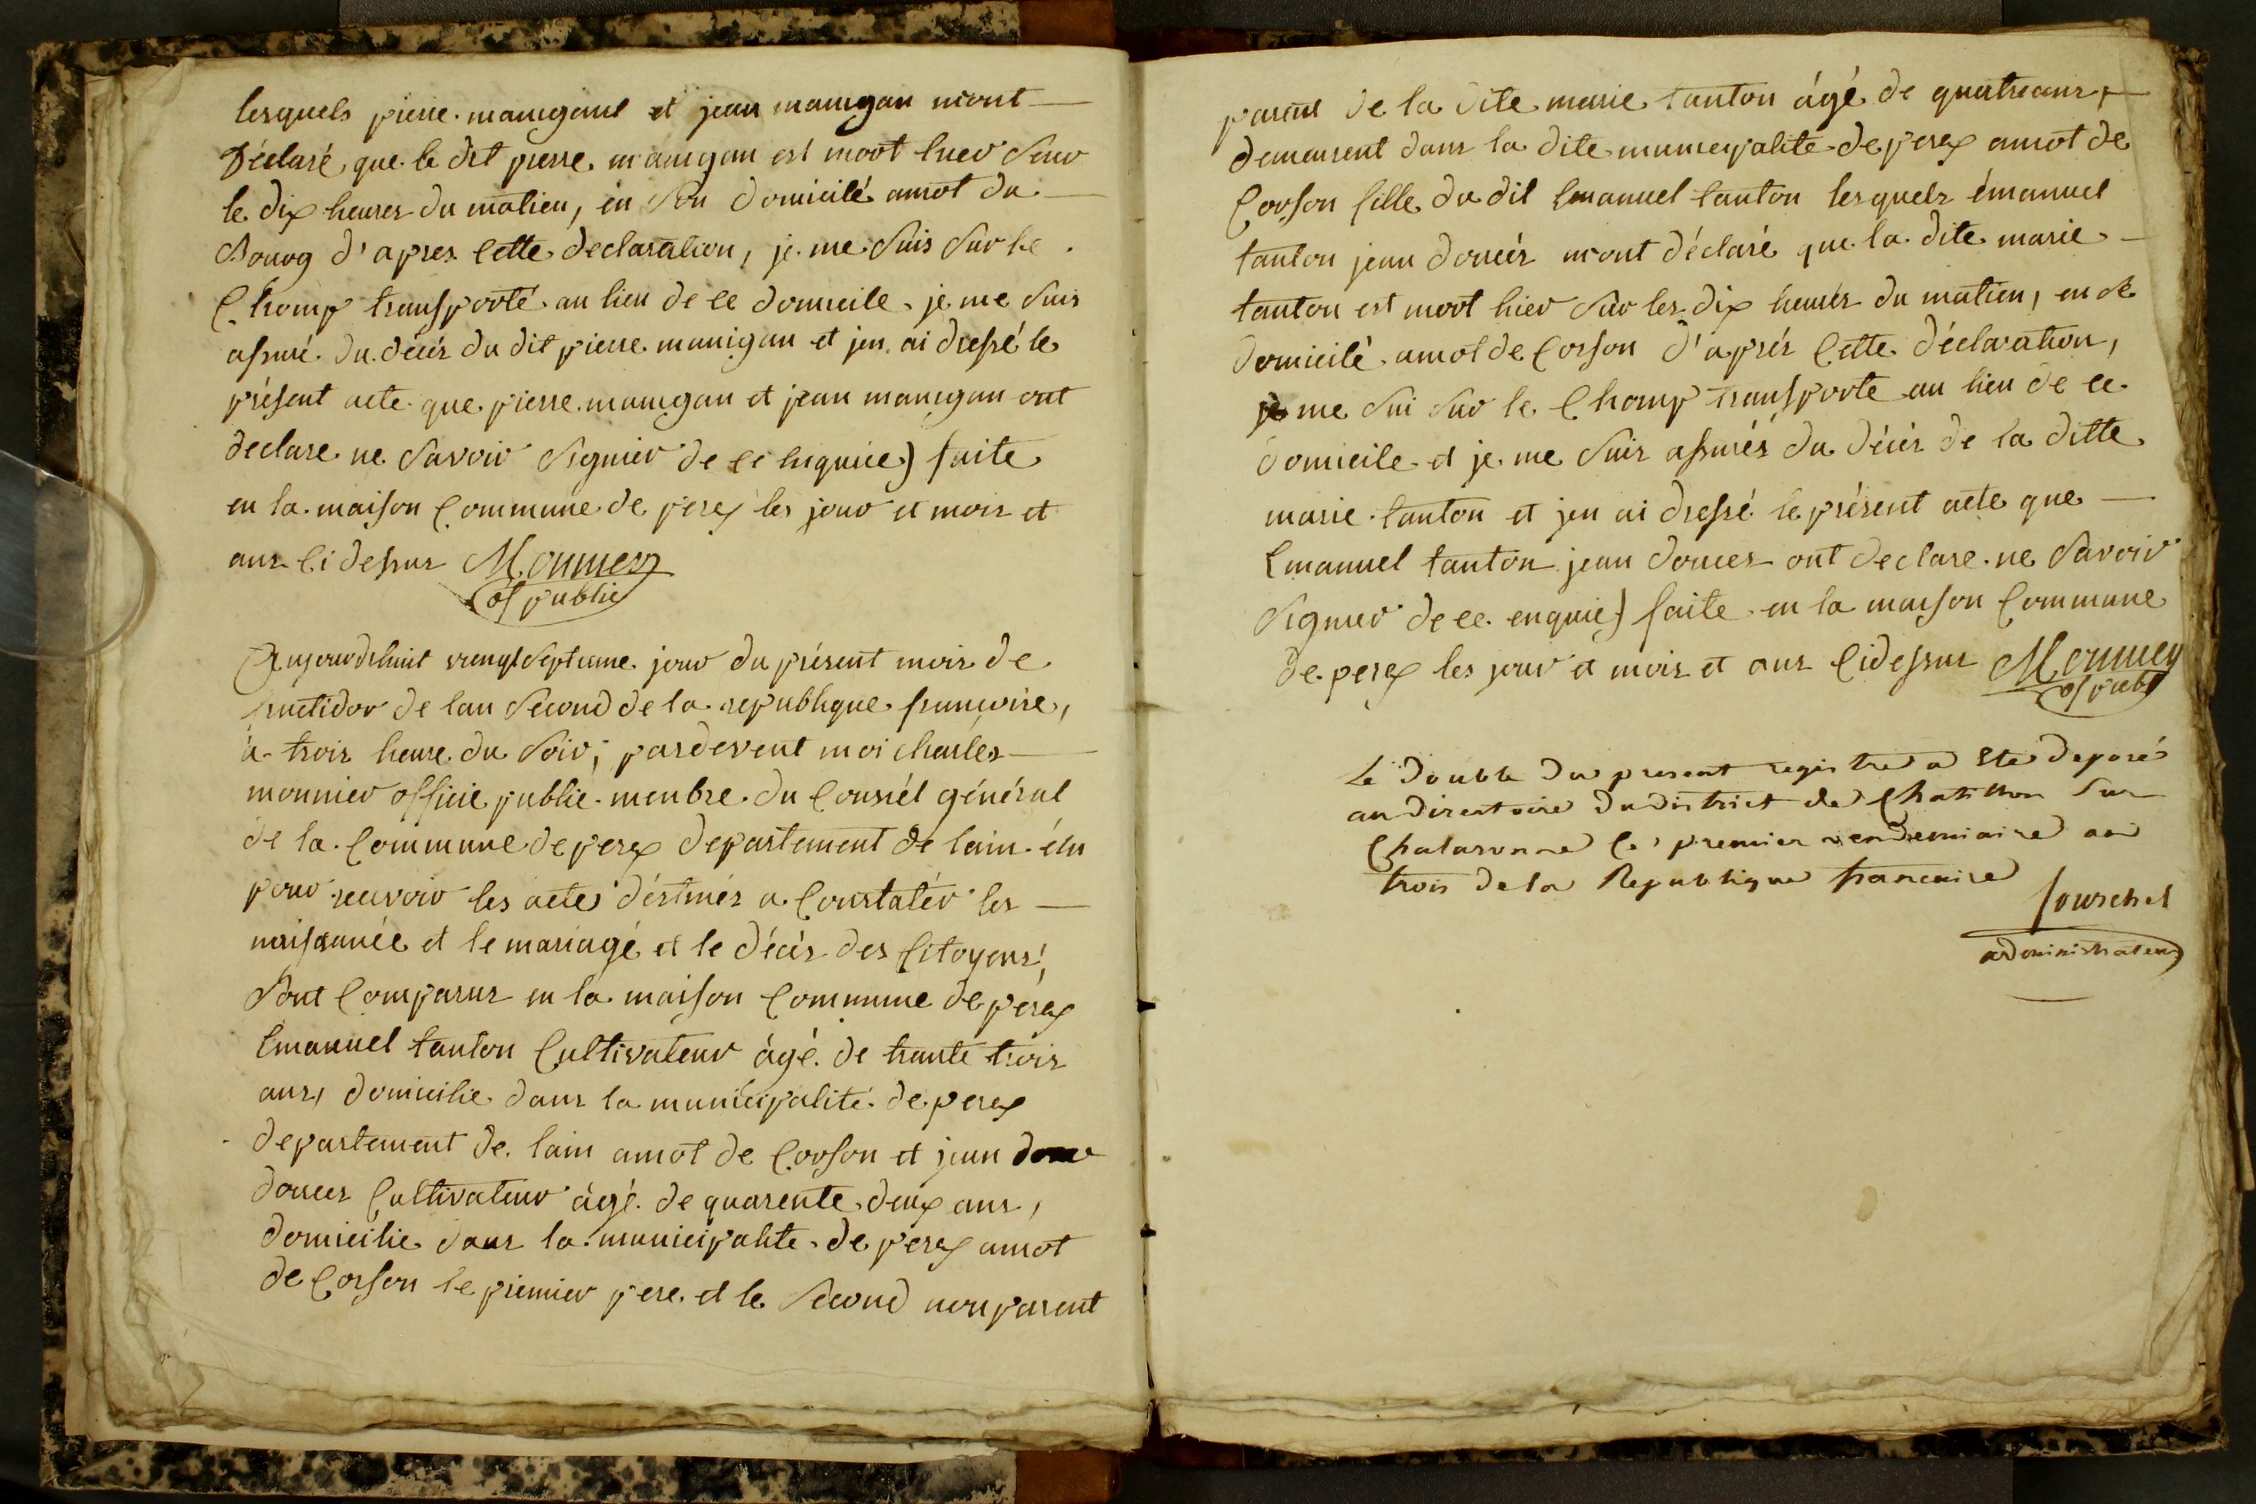 lesquels pierre manigand et jean manigan mont
Déclaré que le dit pierre manigan est mort hier sur
le dix heures du matien, en son domicilé amot du
Bourg d'apres cette declaration, je me suis sur le
Champ transporté au lieu de ce domicile je me suis
assuré du décés du dit pierre manigan et jen ai dressé le
présent acte que pierre manigan et jean manigan ont
declare ne savoir signier de ce enquie) faite
en la maison Commune de perex les jour et mois et
ans Ci dessus Monnier
of public
Aujourdshuit vengt septieme jour du présent mois de
fructidor de lan second de la republique françoise,
à trois heure du soir, pardevent moi charles
monnier officie public menbre du Conseil général
de la Commune de perex departement de lain élu
pour recevoir les acte déstinés a Constatér les
naissancée et le mariagé et le décés des Citoyens,
sont Comparus en la maison Commune de pérex
Emanuel tanton Cultivateur àgé de trante trois
ans, domicilie dans la municipalité de perex
departement de lain amot de Corson et jean
douces Cultivateur àgé de quarente deux ans,
domicilie dans la municipalite de perex amot
de Corson le premier pere et le second non parent
parent de la dite marie tanton âgé de quatre ans,
demeurent dans la dite municipalité de perex amot de
Corson fille du dit Emanuel tanton lesquels émanuel
tanton jean doucés mont déclaré que la dite marie
tanton est mort hier sur les dix heurés du matien, en se
domicilé amot de Corson d'aprés Cette déclaration,
je me sui sur le Champ transporte au lieu de ce
domicile et je me suis assurés du décés de la ditte
marie tanton et jen ai dressé le présent acte que
Emanuel tanton jean douces ont declare ne savoir
signier de ce enquie) faite en la maison Commune
de perex les jour et mois et ans Cidessus Monnier
of publ
Le double du present registre a ete deposé
au directoire du district de Chatillon sur
Chalaronne le premier vendemiaire an
trois de la Republique francaise
administrateur